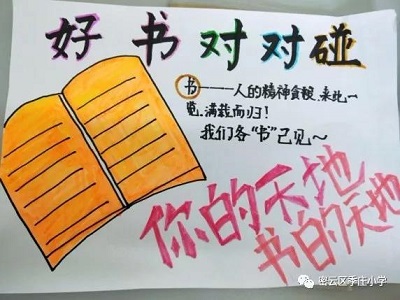 好书对对碰
书——人的精神食粮.来此一
览.满载而归！
我们各“书”己见～
你的天地
书的天地
密云区季庄小学